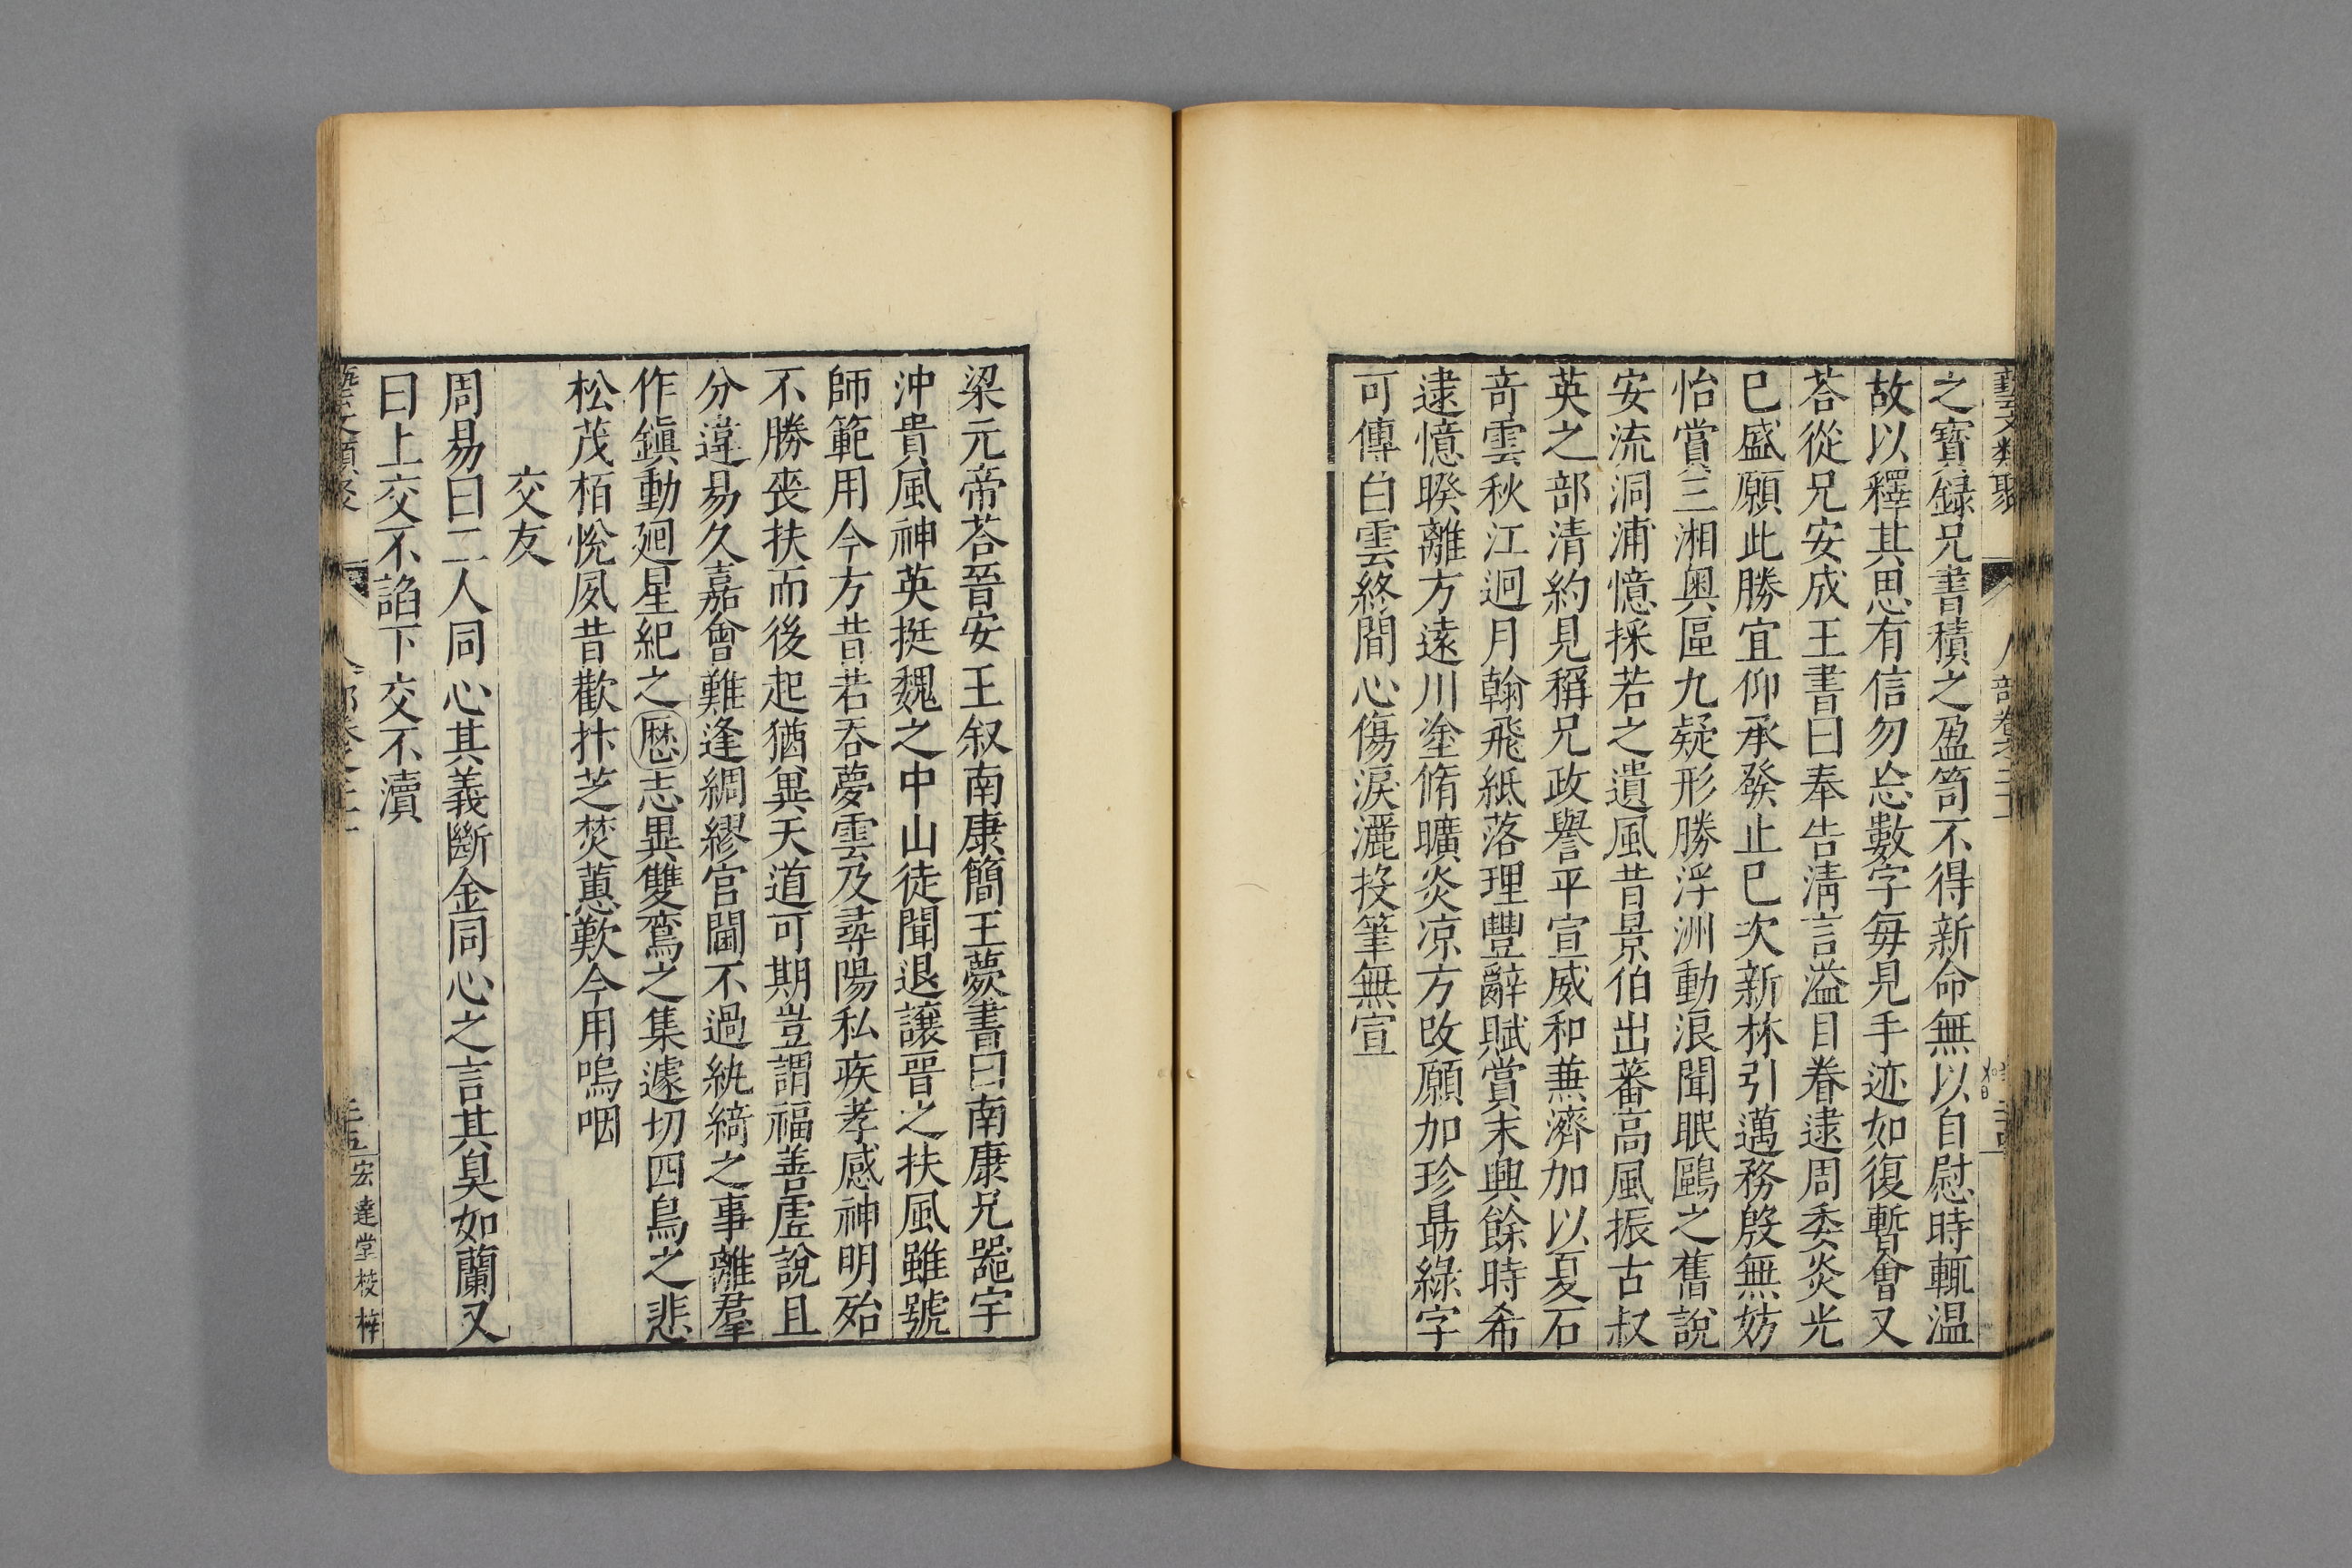 藝文類聚 人部卷之二十一
之寳錄兄書積之盈笥不得新命無以自慰時輒温
故以釋其思有信勿忩數字每見手迹如復暫會又
荅從兄安成王書曰奉告清言溢目眷逮周委炎光
已盛願此勝宜仰承發止已次新林引邁務殷無妨
怡賞三湘奥區九疑形勝浮洲動浪聞眠鷗之舊說
安流洞浦憶採若之遺風昔景伯出蕃高風振古叔
英之部清約見稱兄政譽平宣威和兼濟加以夏石
奇雲秋江迥月翰飛紙落理豐辭賦賞末興餘時希
逮憶暌離方遠川塗脩曠炎凉方改願加珍勗綠字
可傳白雲終間心傷淚灑投筆無宣
梁元帝荅晉安王叙南康簡王薨書曰南康兄器宇
沖貴風神英挺魏之中山徒聞退讓晉之扶風雖號
師範用今方昔若吞夢雲及尋陽私疾孝感神明殆
不勝喪扶而後起猶兾天道可期豈謂福善虚說且
分違易久嘉會難逢綢繆宫闈不過紈綺之事離羣
作鎮動廻星紀之歷志異雙鸞之集遽切四鳥之悲
松茂栢悅夙昔歡抃芝焚蕙歎今用嗚咽
交友
周易曰二人同心其義斷金同心之言其臭如蘭又
曰上交不諂下交不瀆
宏達堂校梓